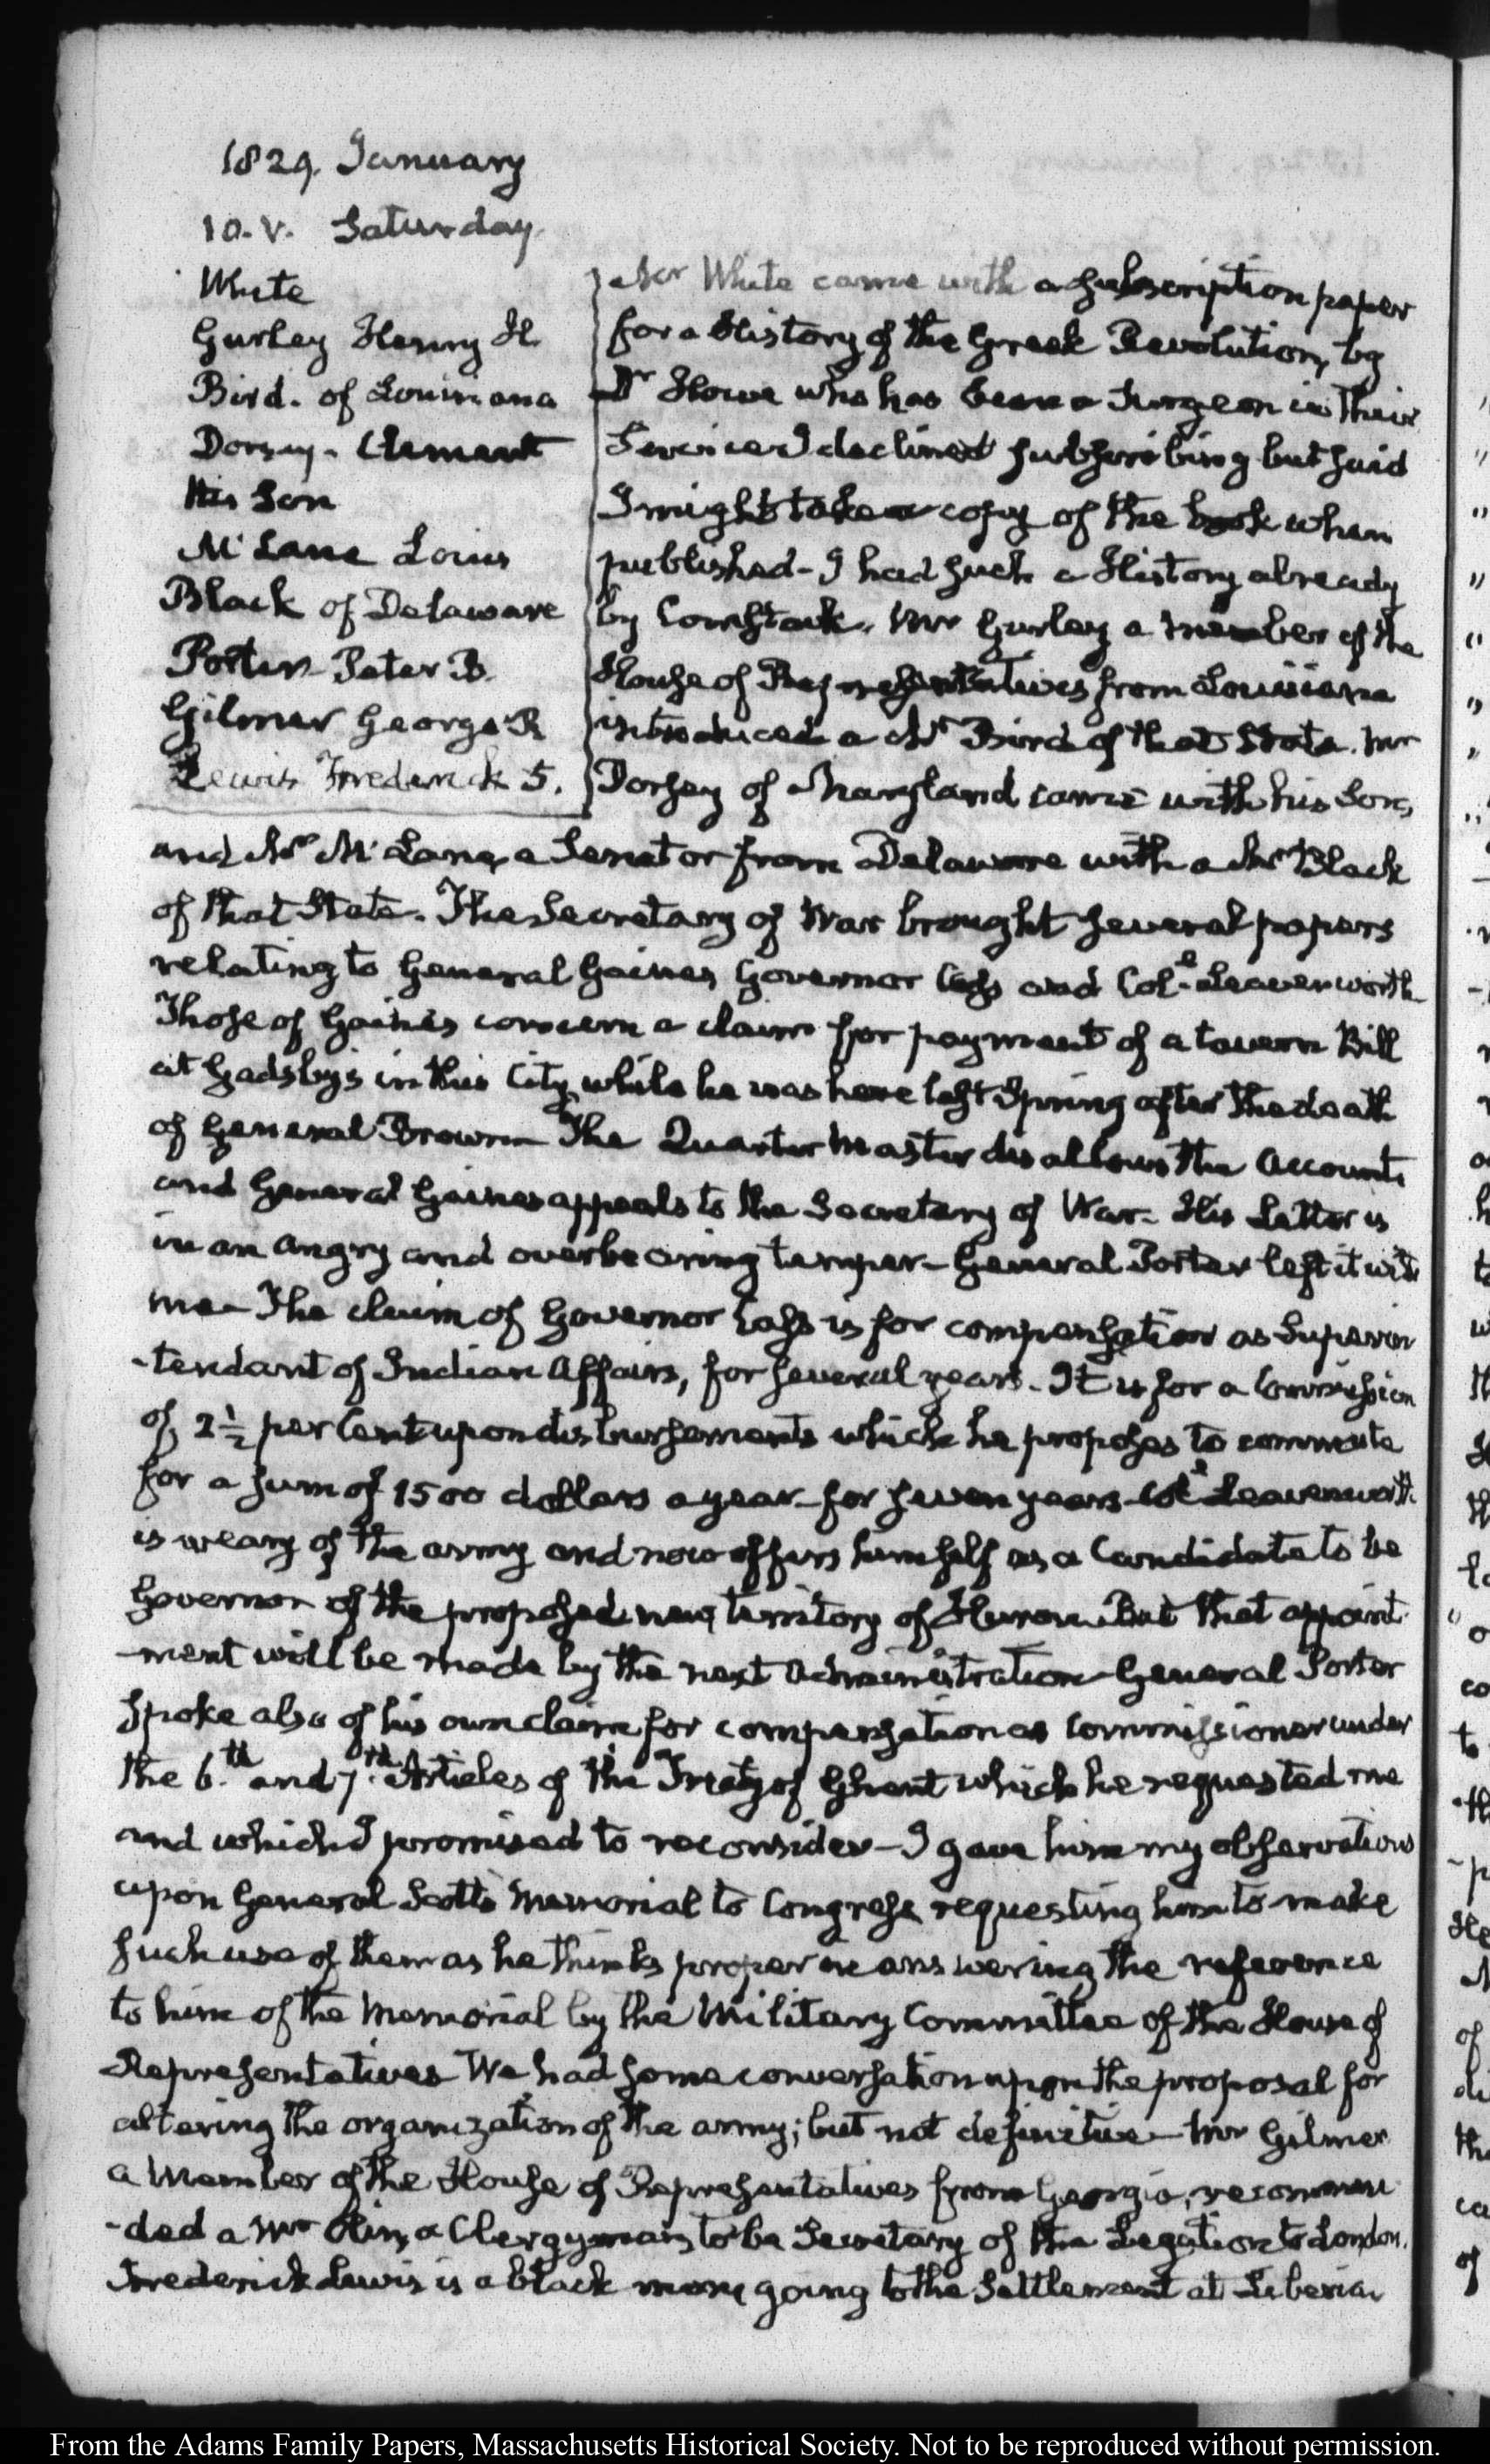 1829. January
10. V. Saturday.
White
Gurley Henry H.
Bird. of Louisiana
Dorsey. Clement
His Son
McLane Louis
Black of Delaware
Porter Peter B.
Gilmer George R
Lewis Frederick S.
Mr White came with a subscription paper
for a History of the Greek Revolution, by
Dr Howe who has been a Surgeon in their
Service. I declined subscribing but said
I might take a copy of the book when
published - I had such a History already
by Comstock. Mr Gurley a member of the
House of Representatives from Louisiana
introduced a Mr Bird of that State. Mr
Dorsey of Maryland came with his Son,
and Mr McLane, a Senator from Delaware with a Mr Black
of that State. The Secretary of War brought several papers
relating to General Gaines Governor Cass and Col. Leavenworth
Those of Gaines concern a claim for payment of a tavern Bill
at Gadsby's in this City, while he was here last Spring after the death
of General Brown - The Quarter Master disallows the Account
and General Gaines appeals to the Secretary of War - His Letter is
in an angry and overbearing temper - General Porter left it with
me - The claim of Governor Cass is for compensation as Superin
-tendant of Indian Affairs, for several years - It is for a Commission
of 2 1/2 per Cent upon disbursements which he proposes to commute
for a sum of 1500 dollars a year for seven years - Col. Leavenworth
is weary of the army and now offers himself as a Candidate to be
Governor of the proposed new territory of Huron. But that appoint
-ment will be made by the next Administration - General Porter
spoke also of his own claim for compensation as Commissioner under
the 6th. and 7th. Articles of the Treaty of Ghent which he requested me
and which I promised to reconsider - I gave him my observations
upon General Scott's Memorial to Congress, requesting him to make
such use of them as he thinks proper in answering the reference
to him of the Memorial by the Military Committee of the House of
Representatives We had some conversation upon the proposal for
altering the organization of the army; but not definitive - Mr Gilmer
a Member of the House of Representatives from Georgia, recommen
-ded a Mr a Clergyman, to be Secretary of the Legation to London.
Frederick Lewis is a black man, going to the Settlement at Liberia,
From the Adams Family Papers, Massachusetts Historical Society. Not to be reproduced without permission.